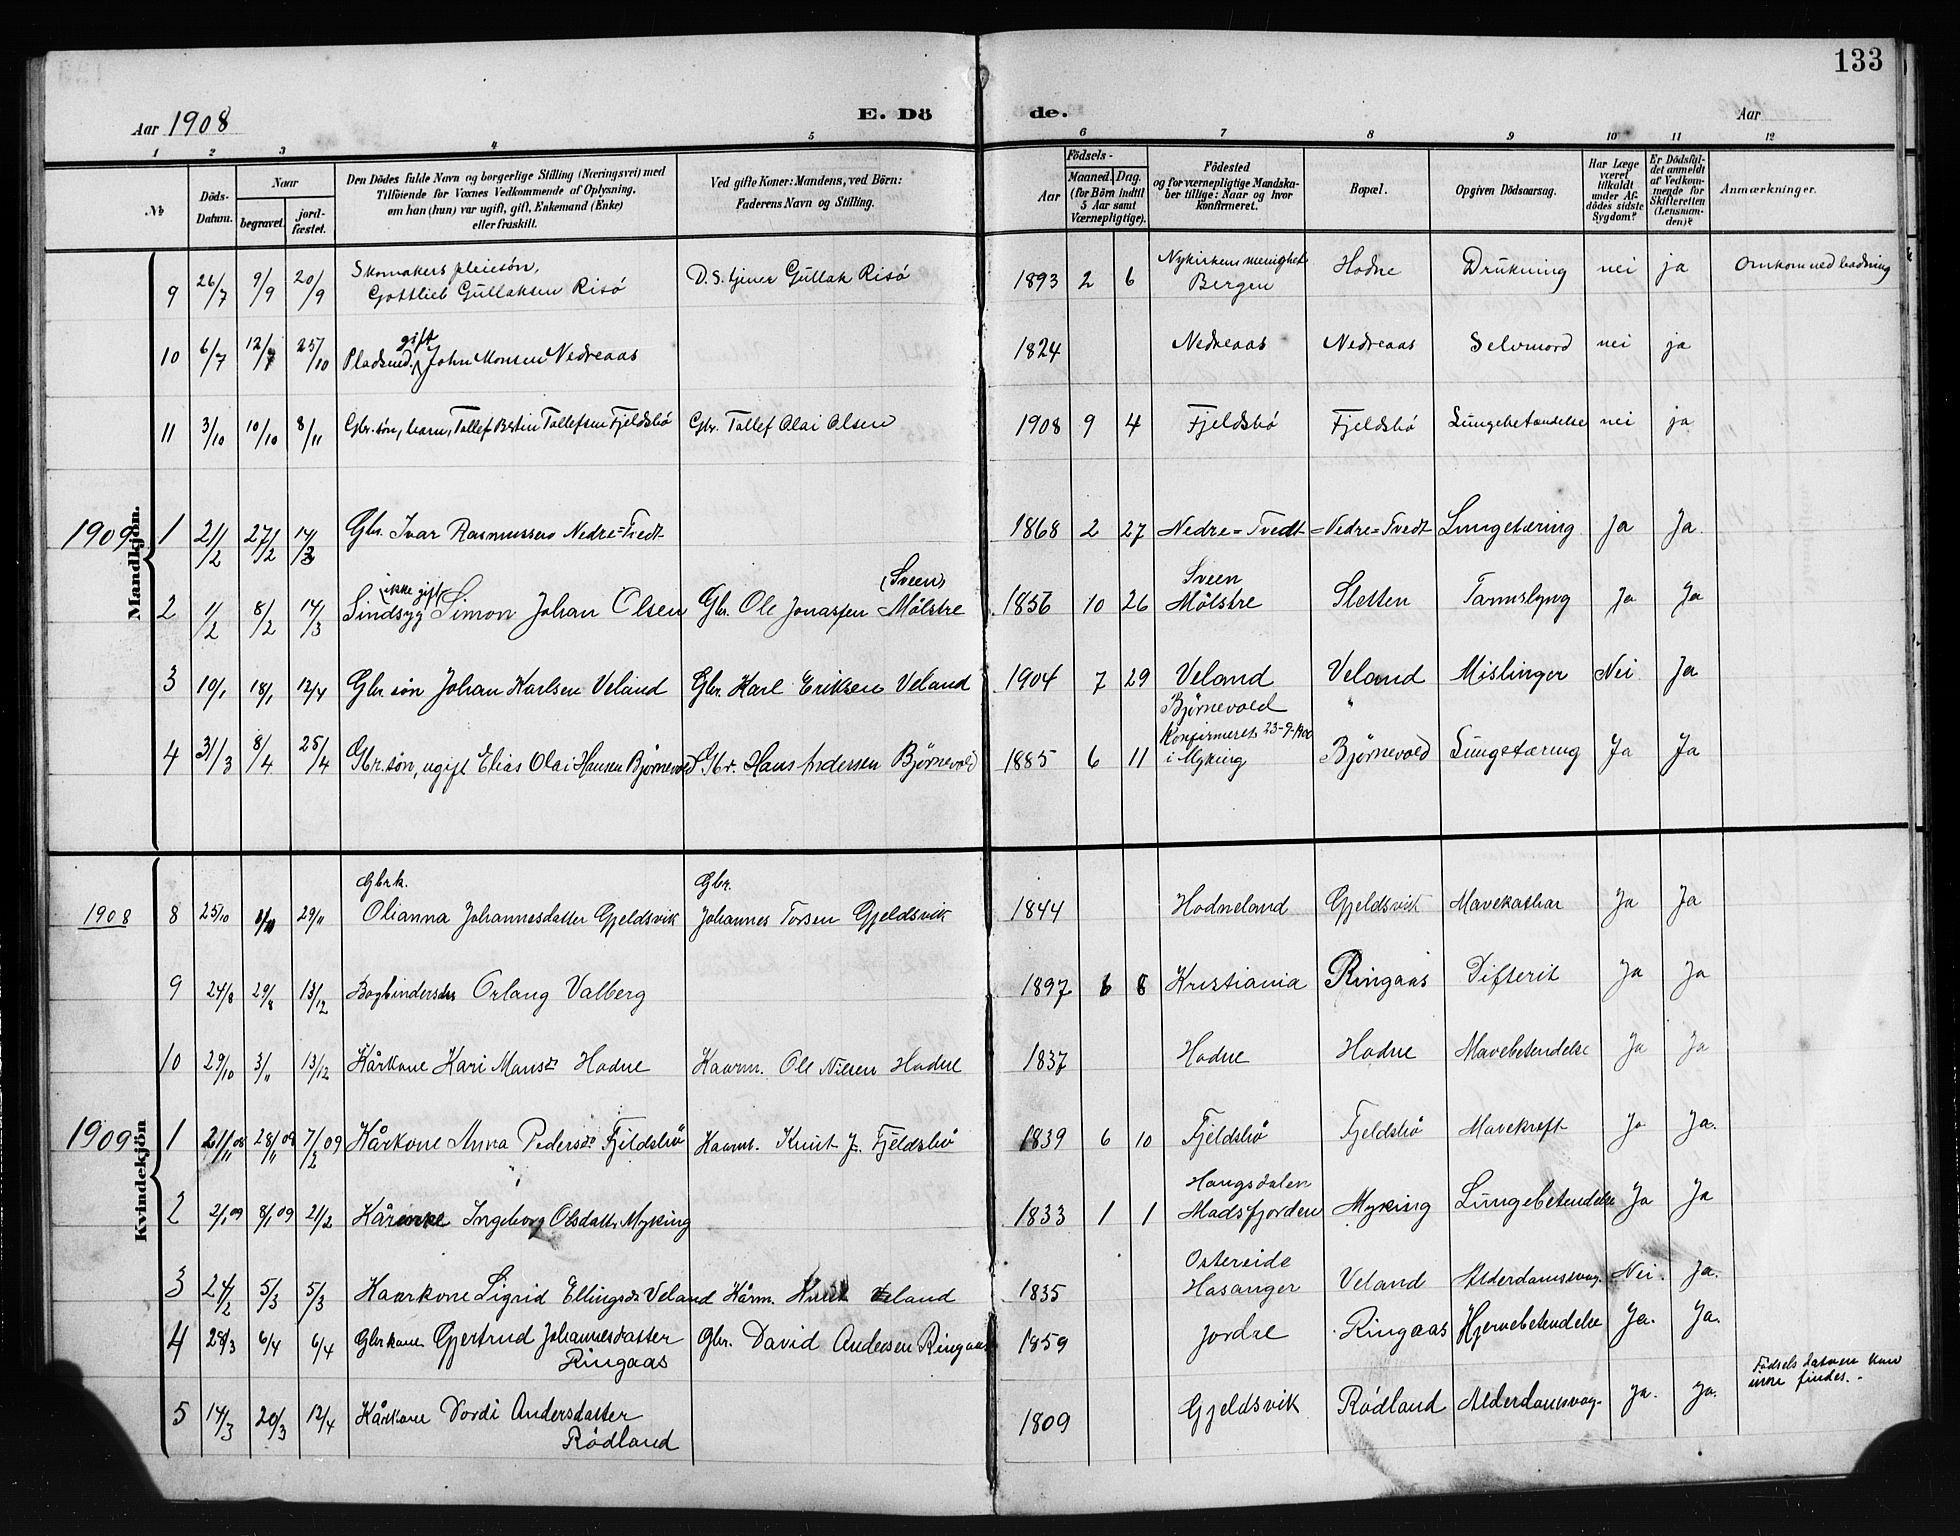 133
Aar 1908 E. Dö de. Aar
1 2 3 4 5 6 7 8 9 10 11 12
№ Döds-Datum. Naar begravet. jordfæstet. Den Dödes fulde Navn og borgerlige Stilling (Næringsvei) med Tilföiende for Voxnes Vedkommende af Oplysning, om han (hun) var ugift, gift, Enkemand (Enke) eller fraskilt. Ved gifte Koner: Mandens, ved Börn: Faderens Navn og Stilling. Födsels- Aar Maaned. Dag. (for Börn indtil 5 Aar samt Værnepligtige). Födested og for værnepligtige Mandskaber tillige: Naar og hvor konfirmeret. Bopæl. Opgiven Dödsaarsag. Har Læge været tilkaldt under Afdödes sidste Sygdom? Er Dödsfaldet anmeldt af Vedkommende for Skifteretten (Lensmanden)? Anmærkninger.
Mandkjön.
9 26/7 9/9 20/9 Skomakers pleiesøn, Gottlieb Gullaksen Risö D.S. tjener Gullak Risö 1893 2 6 Nykirkens menighet Bergen Hodne Drukning nei ja Omkom ved badning
10 6/7 12/7 25/10 Pladsmd. gift John Monsen Nedreaas 1824 Nedreaas Nedreaas Selvmord nei ja
11 3/10 10/10 8/11 Gbr.søn, barn, Tollef Bertin Tollefsen Fjeldsbö Gbr. Tollef Olai Olsen 1908 9 4 Fjeldsbö Fjeldsbö Lungebetændelse nei ja
1909 1 21/2 27/2 14/3 Gbr. Ivar Rasmussen Nedre=Tvedt 1868 2 27 Nedre=Tvedt Nedre=Tvedt Lungetæring Ja Ja.
2 1/2 8/2 14/3 Sindsyg (ikke gift) Simon Johan Olsen Gbr. Ole Jonassen Mölstre (Sveen) 1856 10 26 Sveen Mölstre Sletten Tarmslyng Ja Ja
3 10/1 18/1 12/4 Gbr søn Johan Karlsen Veland Gbr. Karl Eriksen Veland 1904 7 29 Veland Veland Mislinger Nei Ja
4 31/3 8/4 25/4 Gbr.søn, ugift Elias Olai Hansen Björnevold Gbr. Hans Andersen Björnevold 1885 6 11 Björnevold Konfirmeret 23-9-1900 i Myking " Björnevold Lungetæring Ja Ja
Kvindekjön
1908 8 25/10 1/11 29/11 Gbrk. Olianna Johannesdatter Gjeldsvik Gbr. Johannes Torsen Gjeldsvik 1844 Hodneland Gjeldsvik Mavekathar Ja Ja
9 24/8 29/8 13/12 Bogbindersdtr Orlaug Valberg 1897 6 8 Kristiania Ringaas Difterit Ja Ja
10 29/10 3/11 13/12 Kårkone Kari Monsdr Hodne Kaarm. Ole Nilsen Hodne 1837 Hodne Hodne Mavebetendelse Ja Ja
1909 1 21/11 08 28/11 09 7/2 09 Kårkone Anna Pedersdr Fjeldsbö Kaarm. Knut J. Fjeldsbö 1839 6 10 Fjeldsbö Fjeldsbö Mavekreft Ja Ja.
2 2/1 09 8/1 09 21/2 Kårenke Ingeborg Olsdattr. Myking 1833 1 1 Haugsdalen Madsfjorden Myking Lungebetendelse Ja Ja
3 24/2 5/3 5/3 Kaarkone Sigrid Ellingsdr Veland Kårm. Knut Veland 1835 Ostereide Hosanger Veland Alderdomssvag. Nei. Ja.
4 28/3 6/4 6/4 Gbrkone Gjertrud Johannesdatter Ringaas Gbr. David Andersen Ringaas 1859 Jordal Ringaas Hjernebetendelse Ja. Ja.
5 14/3 20/3 12/4 Kårkone Dordi Andersdatter Rödland 1809 Gjeldsvik Rödland Alderdomsvag. Ja. Ja. Födsels datoen kan findes.